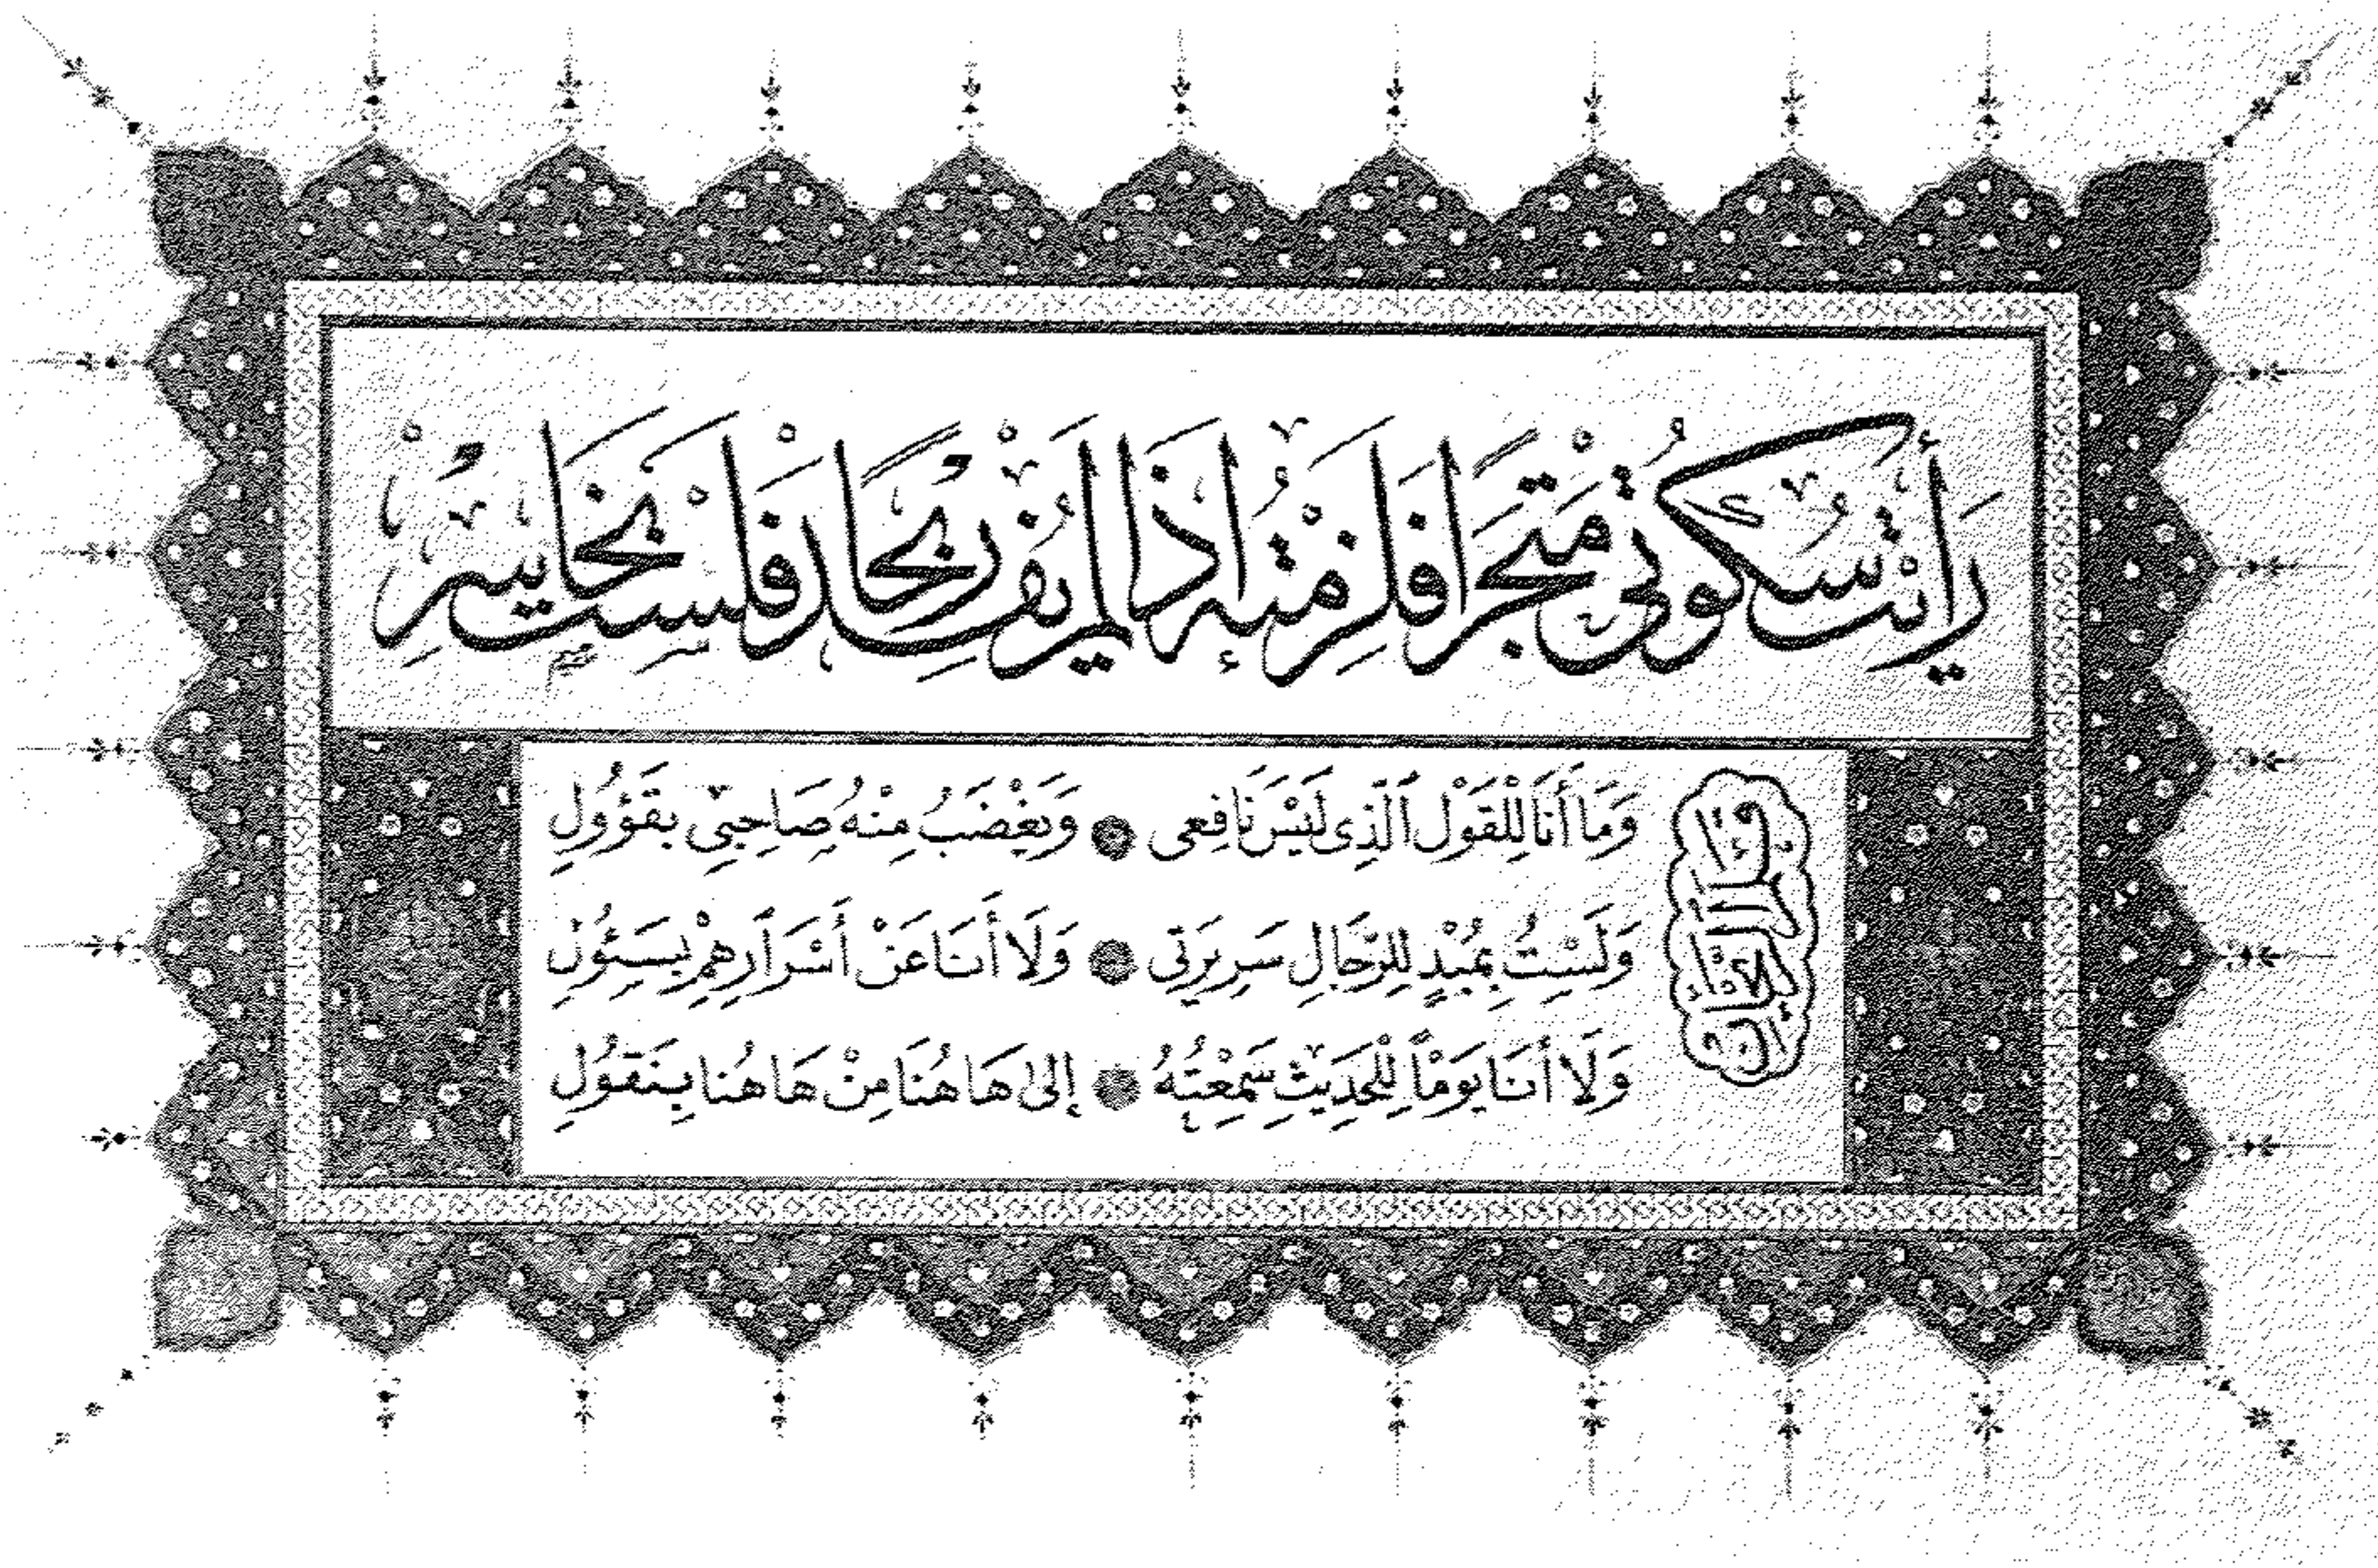 رَأَيْتُ سُكُوتِي مَتْجَراً فَلَزِمْتُهُ إِذَا لَمْ يُفِدْ رِبْحاً فَلَسْتُ بِخَاسِرٍ
وَمَا أَنَا لِلْقَوْلِ ٱلَّذِى لَيْسَ نَافِعِى وَيَغْضَبُ مِنْهُ صَاحِبِى بِقَؤُولِ
وَلَسْتُ بِمُبْدٍ لِلرِّجَالِ سَرِيرَتِى وَلَا أَنَا عَنْ أَسْرَارِهِمْ بِسَئُولِ
وَلَا أَنَا يَوْماً لِلْحَدِيثِ سَمِعْتُهُ إِلَى هَاهُنَا مِنْ هَاهُنَا بِنَقُولِ